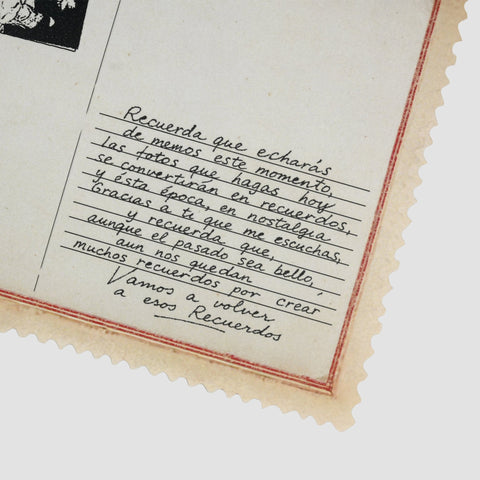 Recuerda que echarás
de memos este momento,
las fotos que hagas hoy
se convertirán en recuerdos,
y ésta época, en nostalgia
Gracias a ti que me escuchas,
y recuerda que,
aunque el pasado sea bello,
aun nos quedan
muchos recuerdos por crear
Vamos a volver
a esos Recuerdos